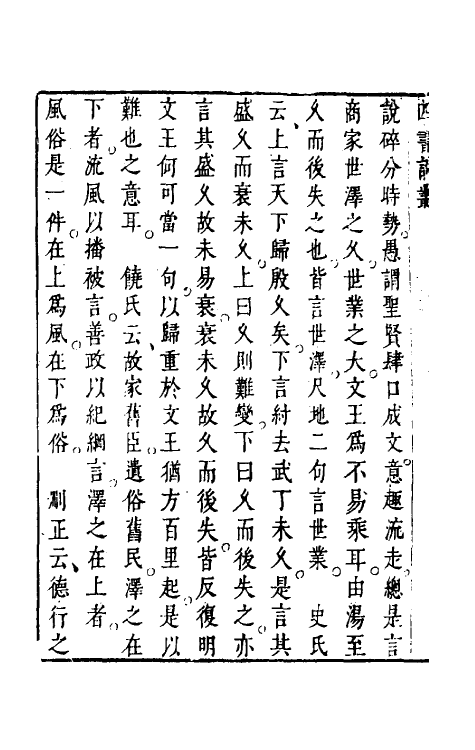 說碎分時勢愚謂聖賢肆口成文意趣流走總是言
商家世澤之久世業之大文王爲不易乘耳由湯至
久而後失之也皆言世澤尺地二句言世業　史氏
云上言天下歸殷久矣下言紂去武丁未久是言其
盛久而衰未久上曰久則難變下曰久而後失之亦
言其盛久故未易衰衰未久故久而後失皆反復明
文王何可當一句以歸重於文王猶方百里起是以
難也之意耳　饒氏云故家舊臣遺俗舊民澤之在
下者流風以播被言善政以紀綱言澤之在上者
風俗是一件在上爲風在下爲俗　刪正云德行之